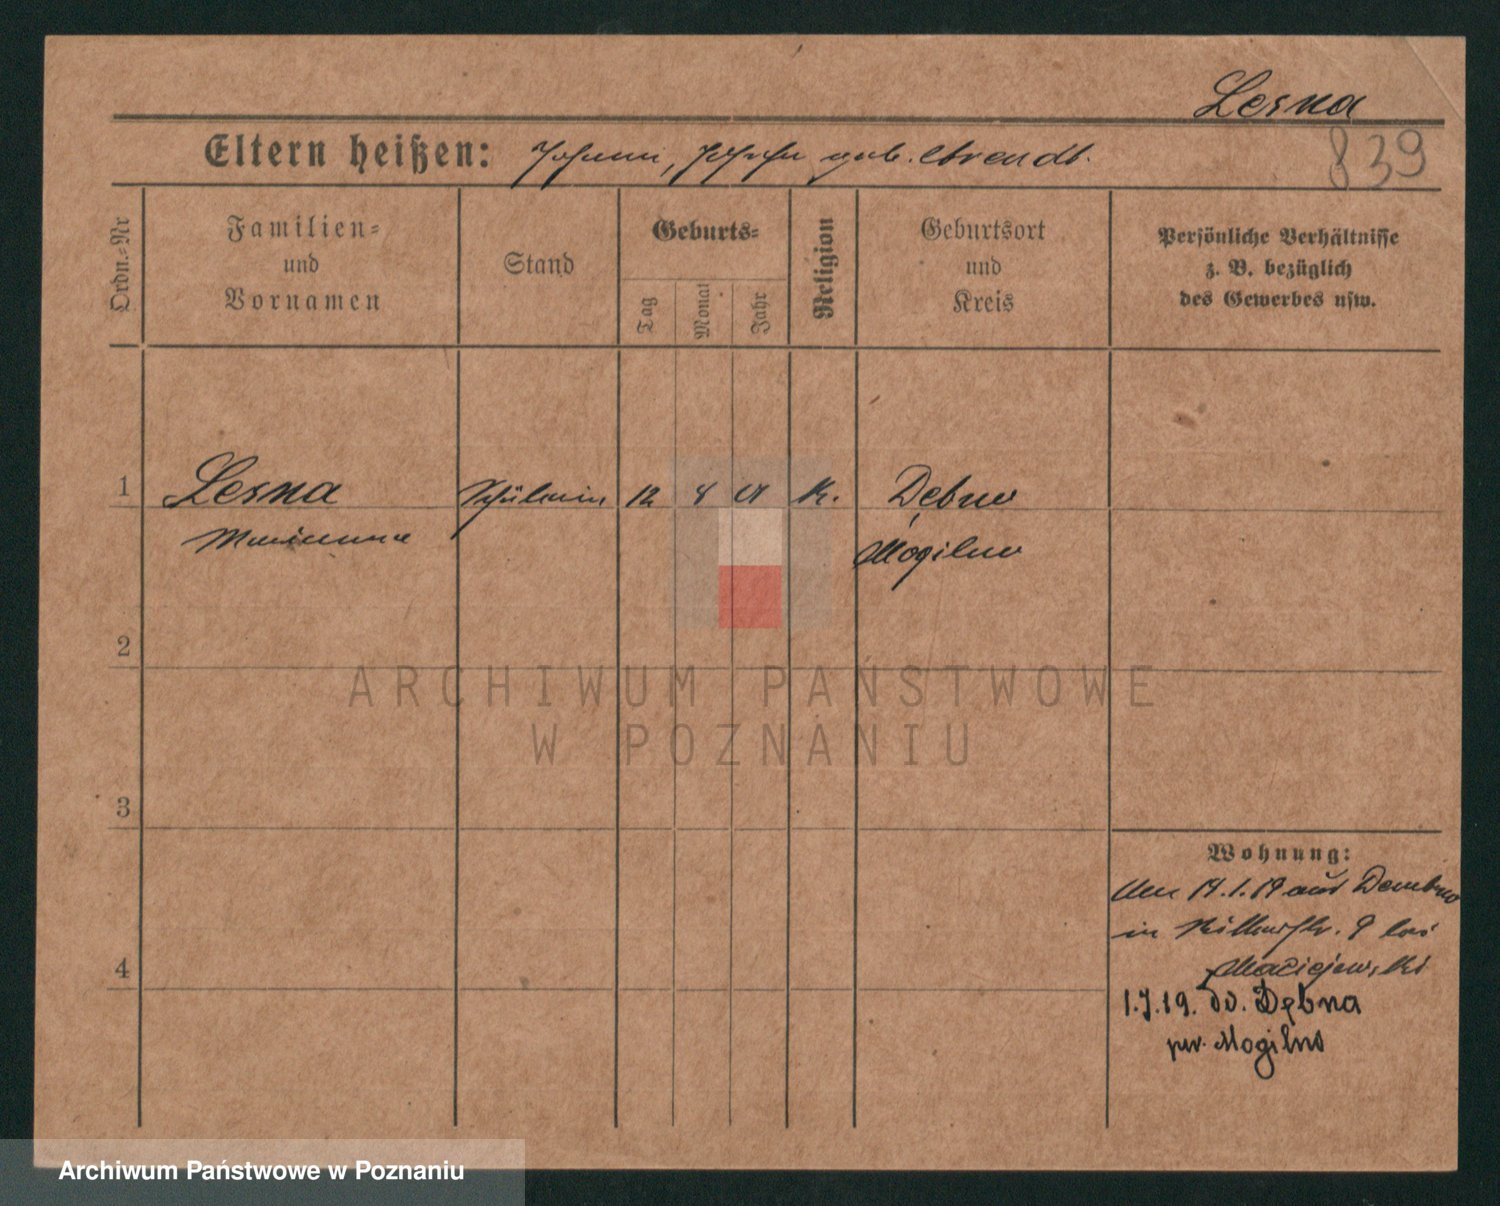 Lesna
839
Eltern heißen: Johann, geb. Arendt.
Ordn.-Nr
Familien-
und
Vornamen
Stand
Geburts-
Tag
Monat
Jahr
Religion
Geburtsort
und
Kreis
Persönliche Verhältnisse
z. B. bezüglich
des Gewerbes usw.
1 Lesna Schülerin 12 8 K. Dębno
Marianna Mogilno
2
3
4
Wohnung:
14.1.19 aus Dembno
in 9 bei
Maciejewski
1.7.19. do. Dębna
pow. Mogilno
ARCHIWUM PAŃSTWOWE
W POZNANIU
Archiwum Państwowe w Poznaniu